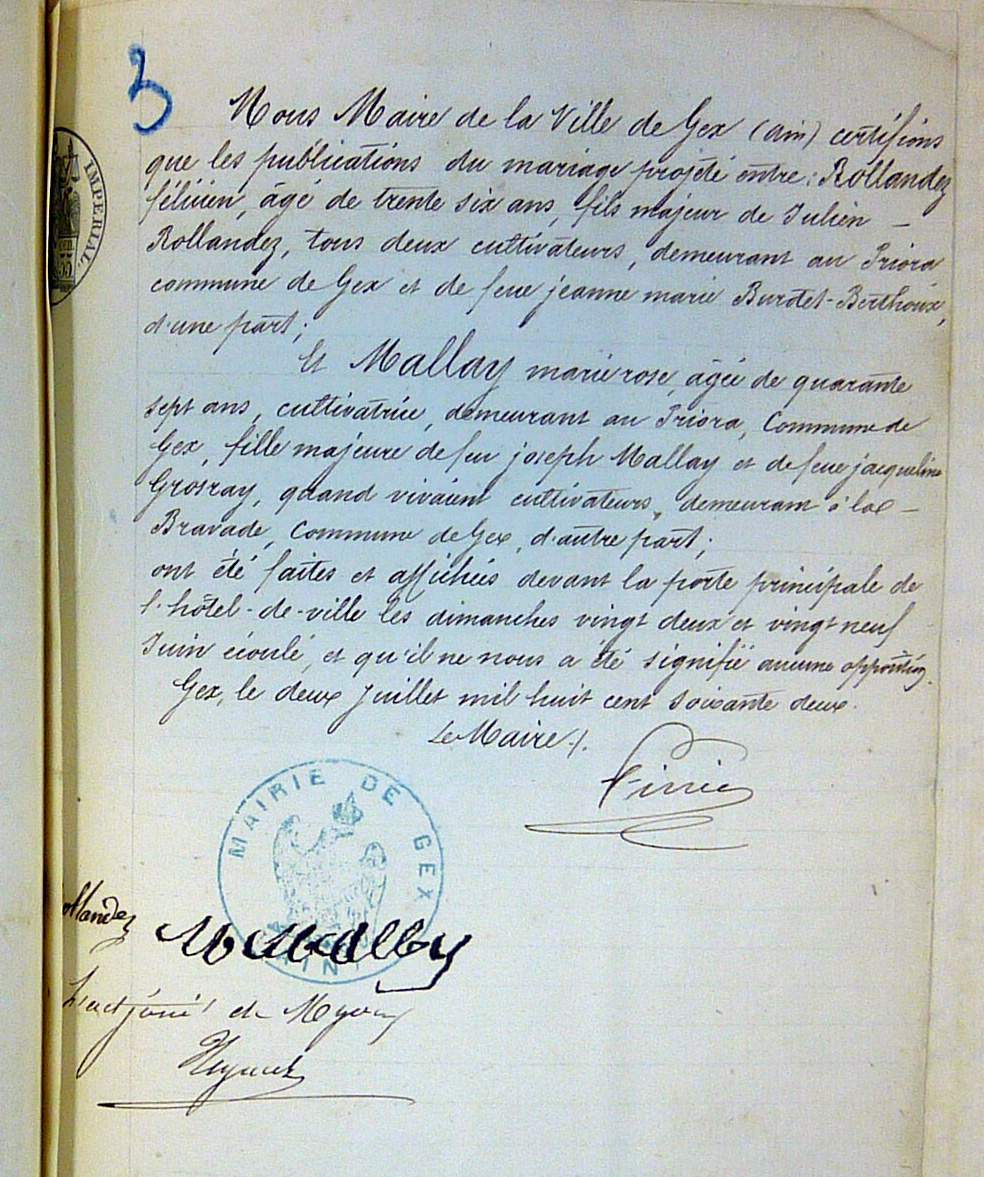 3
IMPERIAL
Nous Maire de la Ville de Gex (ain) certifions
que les publications du mariage projeté entre : Rollandez
féliçien, âgé de trente six ans, fils majeur de Julien –
Rollandez, tous deux cultivateurs, demeurant au Priora
commune de Gex et de feue jeanne marie Burdet-Berthoux,
d'une part ;
Et Mallay marie rose, âgée de quarante
sept ans, cultivatrice, demeurant au Priora, Commune de
Gex, fille majeure de feu joseph Mallay et de feue jacqueline
Grosray, quand vivaient cultivateurs, demeuram à la –
Bravade, Commune de Gex, d'autre part ;
ont été faites et affichées devant la porte principale de
l'hôtel-de-ville les dimanches vingt deux et vingt neuf
Juin écoulé, et qu'il ne nous a été signifié aucune opposition.
Gex, le deux Juillet mil huit cent soixante deux.
Le Maire /.
MAIRIE DE GEX
AIN
ollandez
M Mallay
L'adjoint de